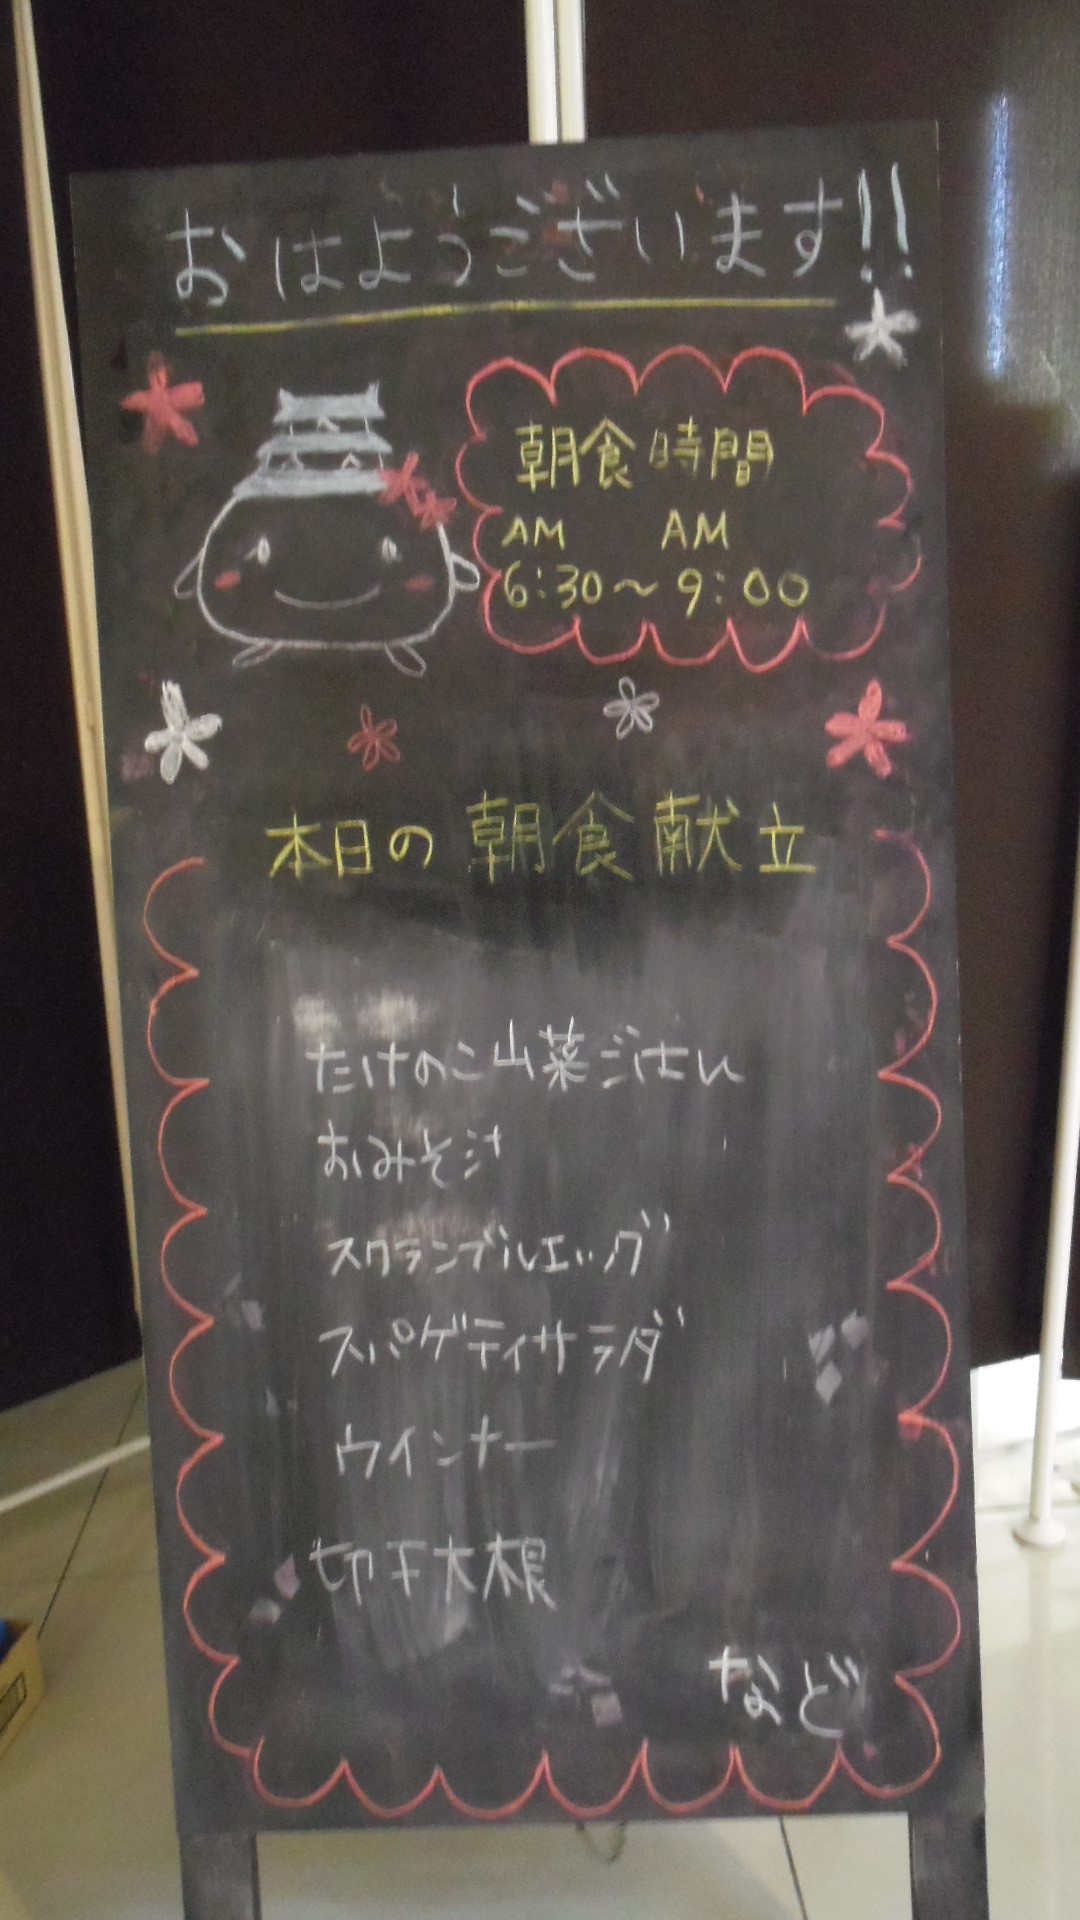 おはようございます!!
朝食時間
AM AM
6:30～9:00
本日の朝食献立
たけのこ山菜ごはん
おみそ汁
スクランブルエッグ
スパゲティサラダ
ウインナー
切干大根
など